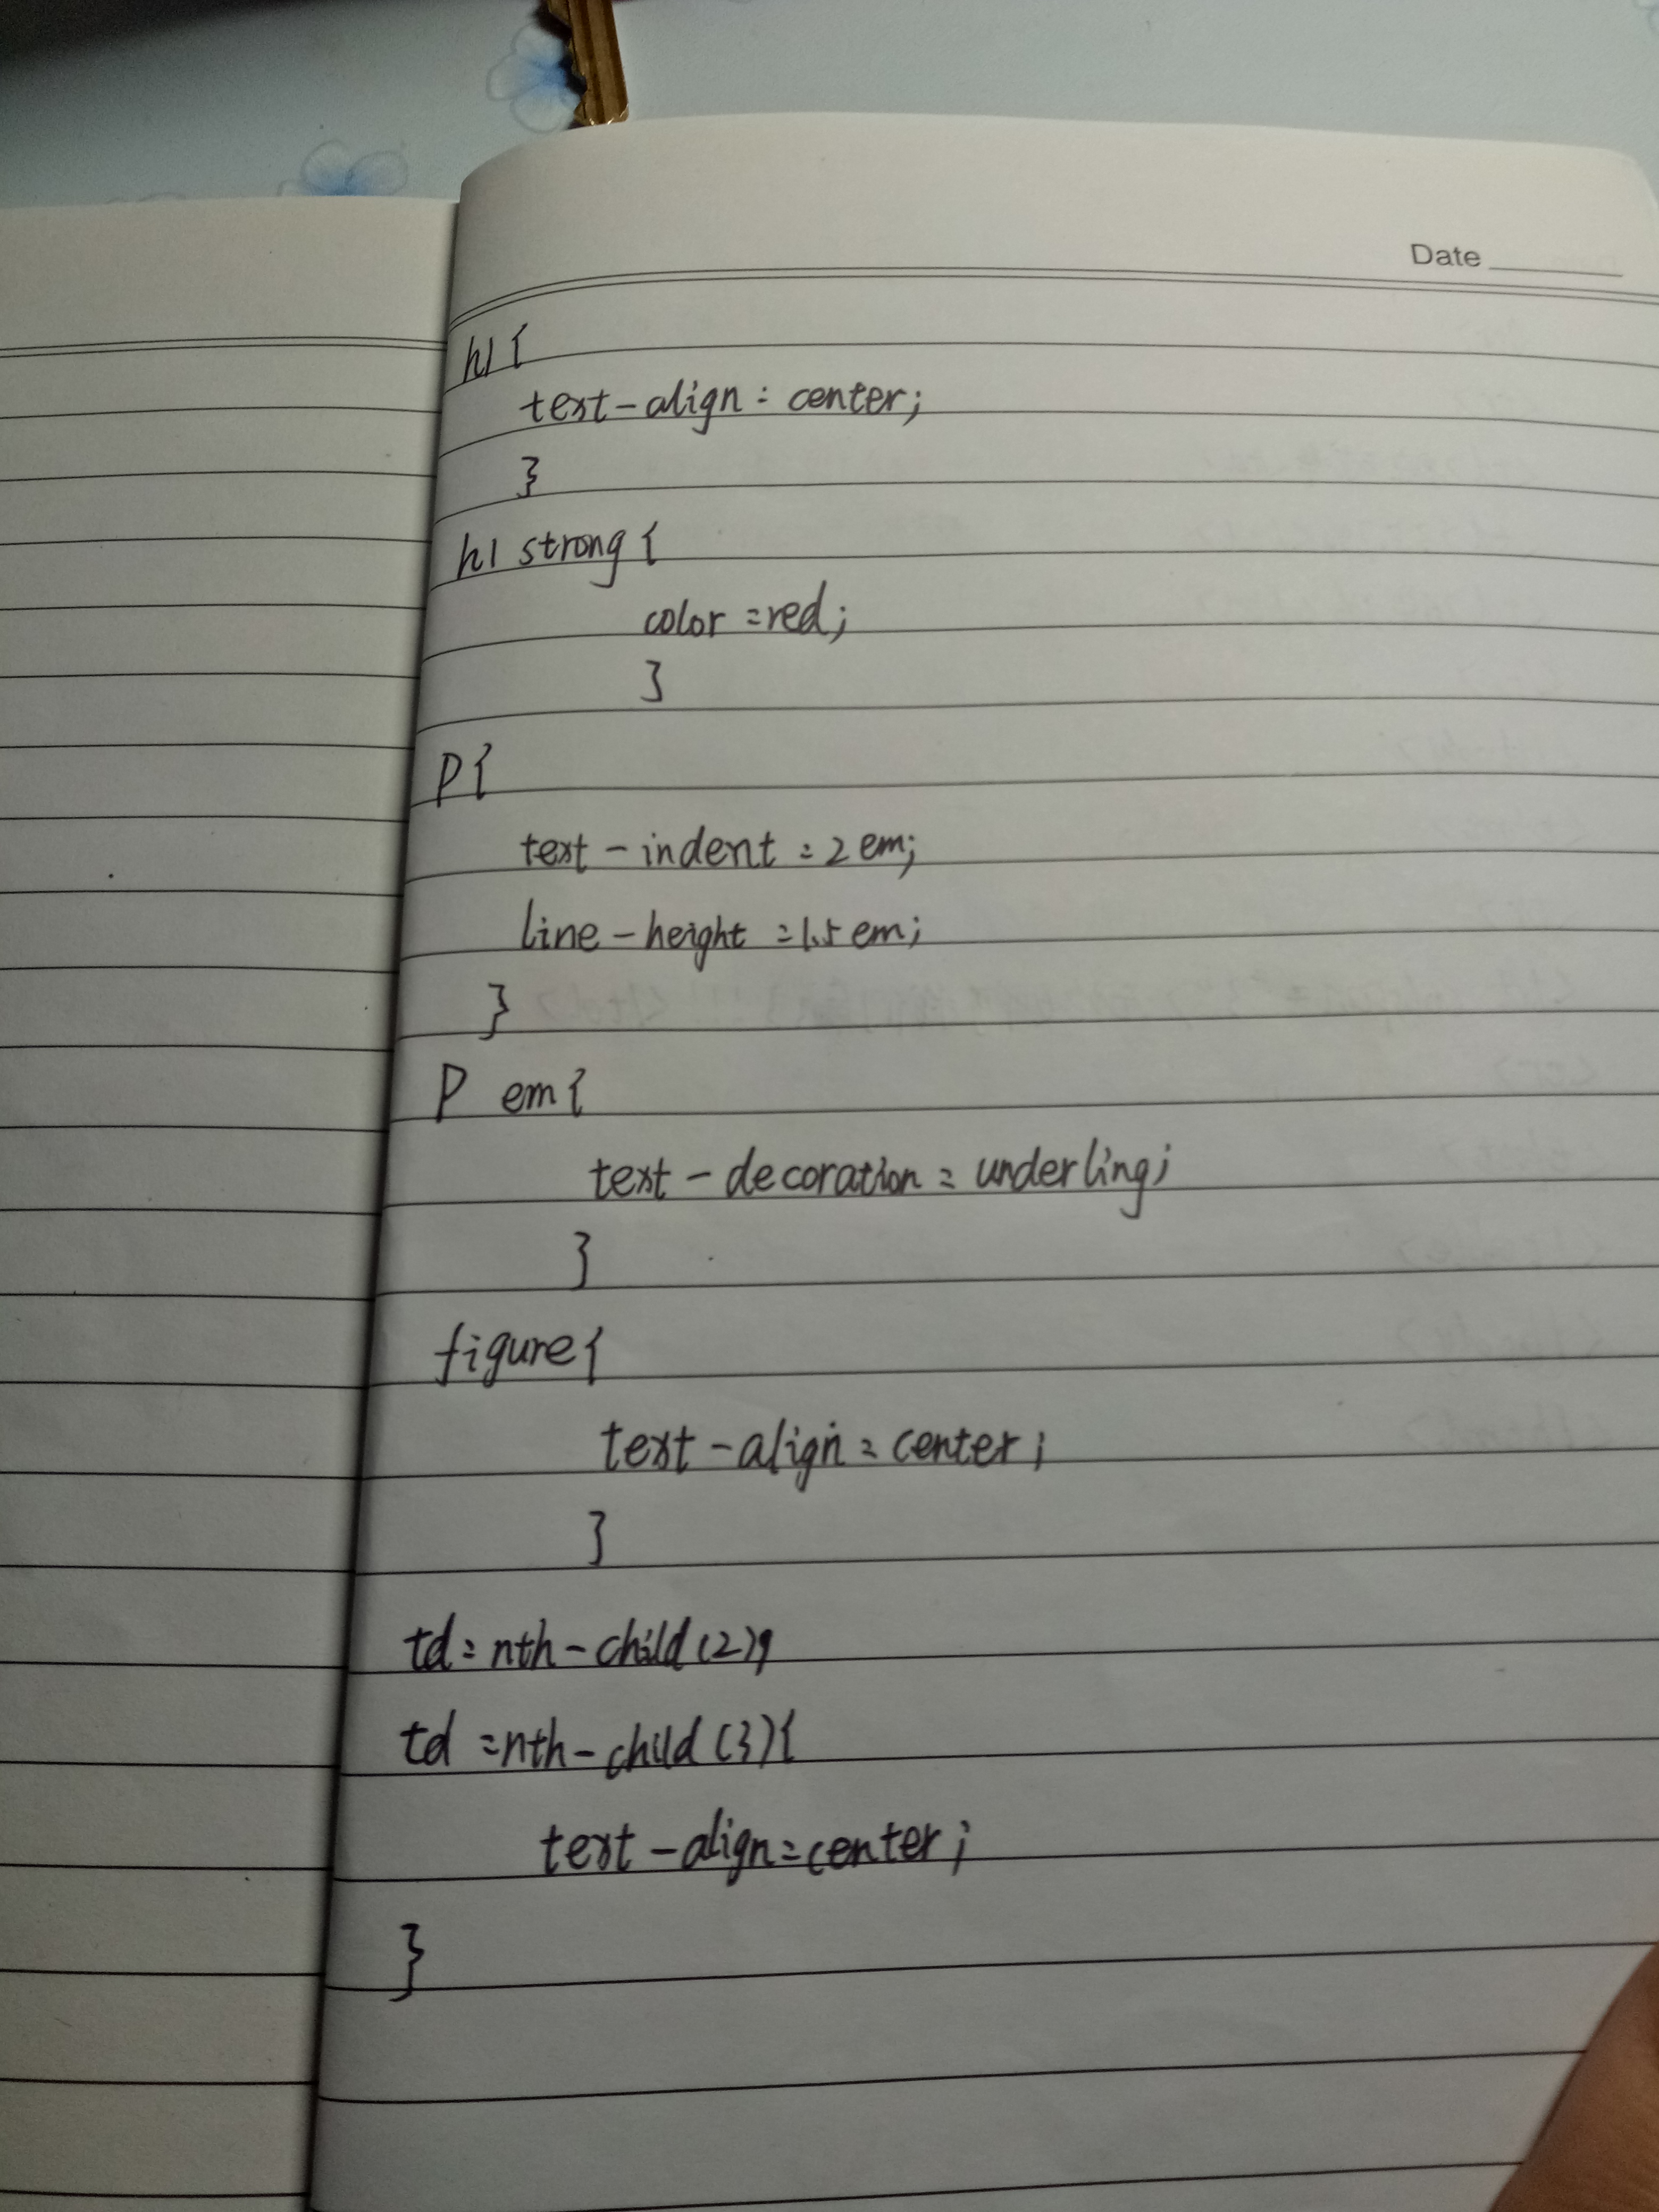 Date
h1{
text-align: center;
}
h1 strong{
color:red;
}
P{
text-indent:2em;
line-height:1.5em;
}
P em{
text-decoration:underling;
}
figure{
text-align:center;
}
td:nth-child(2),
td:nth-child(3){
text-align:center;
}